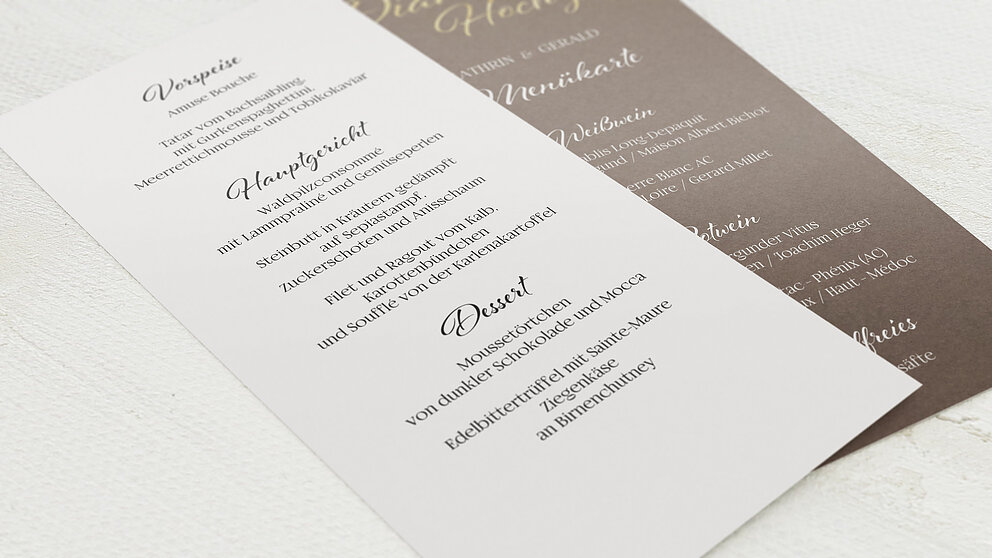 Vorspeise
Amuse Bouche
Tatar vom Bachsaibling,
mit Gurkenspaghettini,
Meerrettichmousse und Tobikokaviar
Hauptgericht
Waldpilzconsommé
mit Lammpraliné und Gemüseperlen
Steinbutt in Kräutern gedämpft
auf Sepiastampf,
Zuckerschoten und Anisschaum
Filet und Ragout vom Kalb,
Karottenbündchen
und Soufflé von der Karlenakartoffel
Dessert
Moussetörtchen
von dunkler Schokolade und Mocca
Edelbittertrüffel mit Sainte-Maure
Ziegenkäse
an Birnenchutney
& GERALD
Menükarte
Weißwein
Long-Depaquit
/ Maison Albert Bichot
Blanc AC
Loire / Gerard Millet
Rotwein
Vitus
/ Joachim Heger
- Phénix (AC)
/ Haut - Médoc